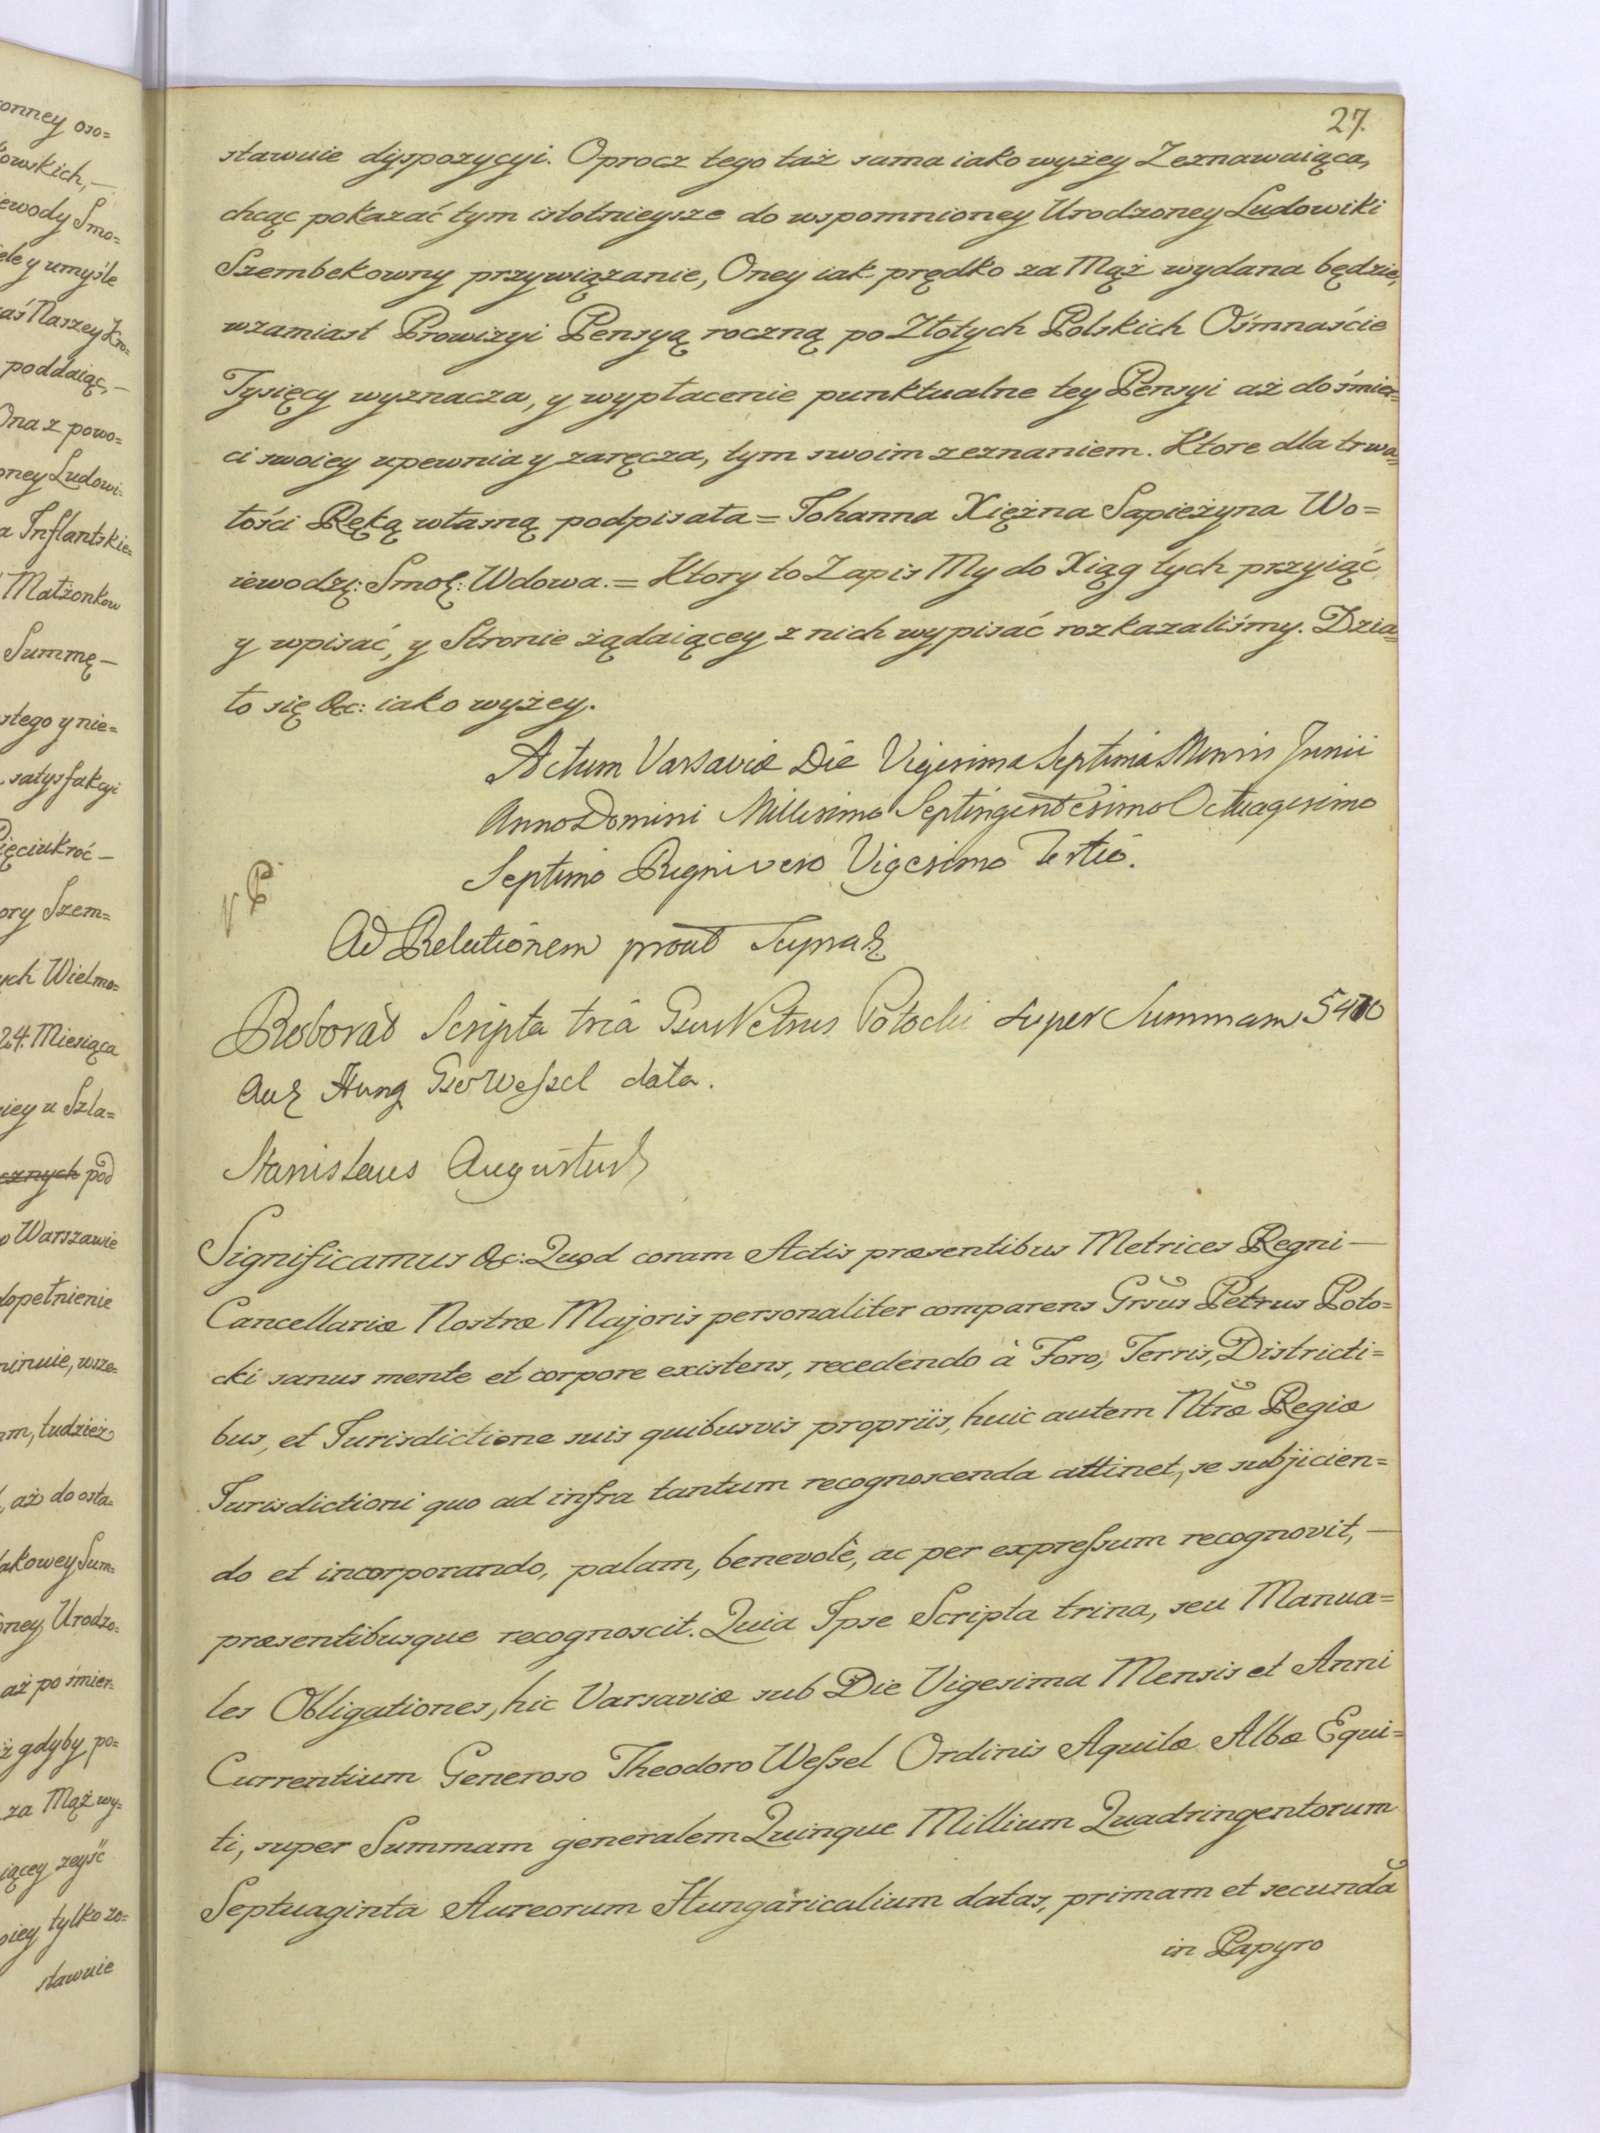 27.
stawuie dyspozycyi. Oprocz tego taż sama iako wyżey Zeznawaiąca,
chcąc pokazać tym istotnieysze do wspomnioney Urodzoney Ludowiki
Szembekowny przywiązanie, Oney iak prędko za Mąż wydana będzie,
wzamiast Prowizyi Pensyą roczną po Złotych Polskich Ośmnaście
Tysięcy wyznacza, y wypłacenie punktualne tey Pensyi aż do śmier=
ci swoiey upewnia y zaręcza, tym swoim zeznaniem. Ktore dla trwa=
łości Ręką własną podpisała = Johanna Xiężna Sapieżyna Wo=
iewodz: Smol: Wdowa. = Ktory to Zapis My do Xiąg tych przyiąć
y wpisać, y Stronie żądaiącey z nich wypisać rozkazaliśmy. Dzia=
ło się &c: iako wyżey.
Actum Varsaviæ Die Vigesima Septima Mensis Junii
Anno Domini Millesimo Septingentesimo Octuagesimo
Septimo Regni vero Vigesimo Tertio.
Ad Relationem prout Supra
Roborat Scripta tria Gsus Petrus Potocki super Summam 5470
Aur Hung Gso Weſsel data.
Stanislaus Augustus
Significamus &c: Quod coram Actis præsentibus Metrices Regni —
Cancellariæ Nostræ Majoris personaliter comparens Grsus Petrus Poto=
cki sanus mente et corpore existens, recedendo à Foro, Terris, Districti=
bus, et Jurisdictione suis quibusvis propriis, huic autem Ntræ Regiæ
Jurisdictioni quo ad infra tantum recognoscenda attinet, se subjicien=
do et incorporando, palam, benevolè, ac per expreſsum recognovit, —
præsentibusque recognoscit. Quia Ipse Scripta trina, seu Manua=
les Obligationes, hic Varsaviæ sub Die Vigesima Mensis et Anni
Currentium Generoso Theodoro Weſsel Ordinis Aquilæ Albæ Equi=
ti, super Summam generalem Quinque Millium Quadringentorum
Septuaginta Aureorum Hungaricalium datas, primam et secundã
in Papyro